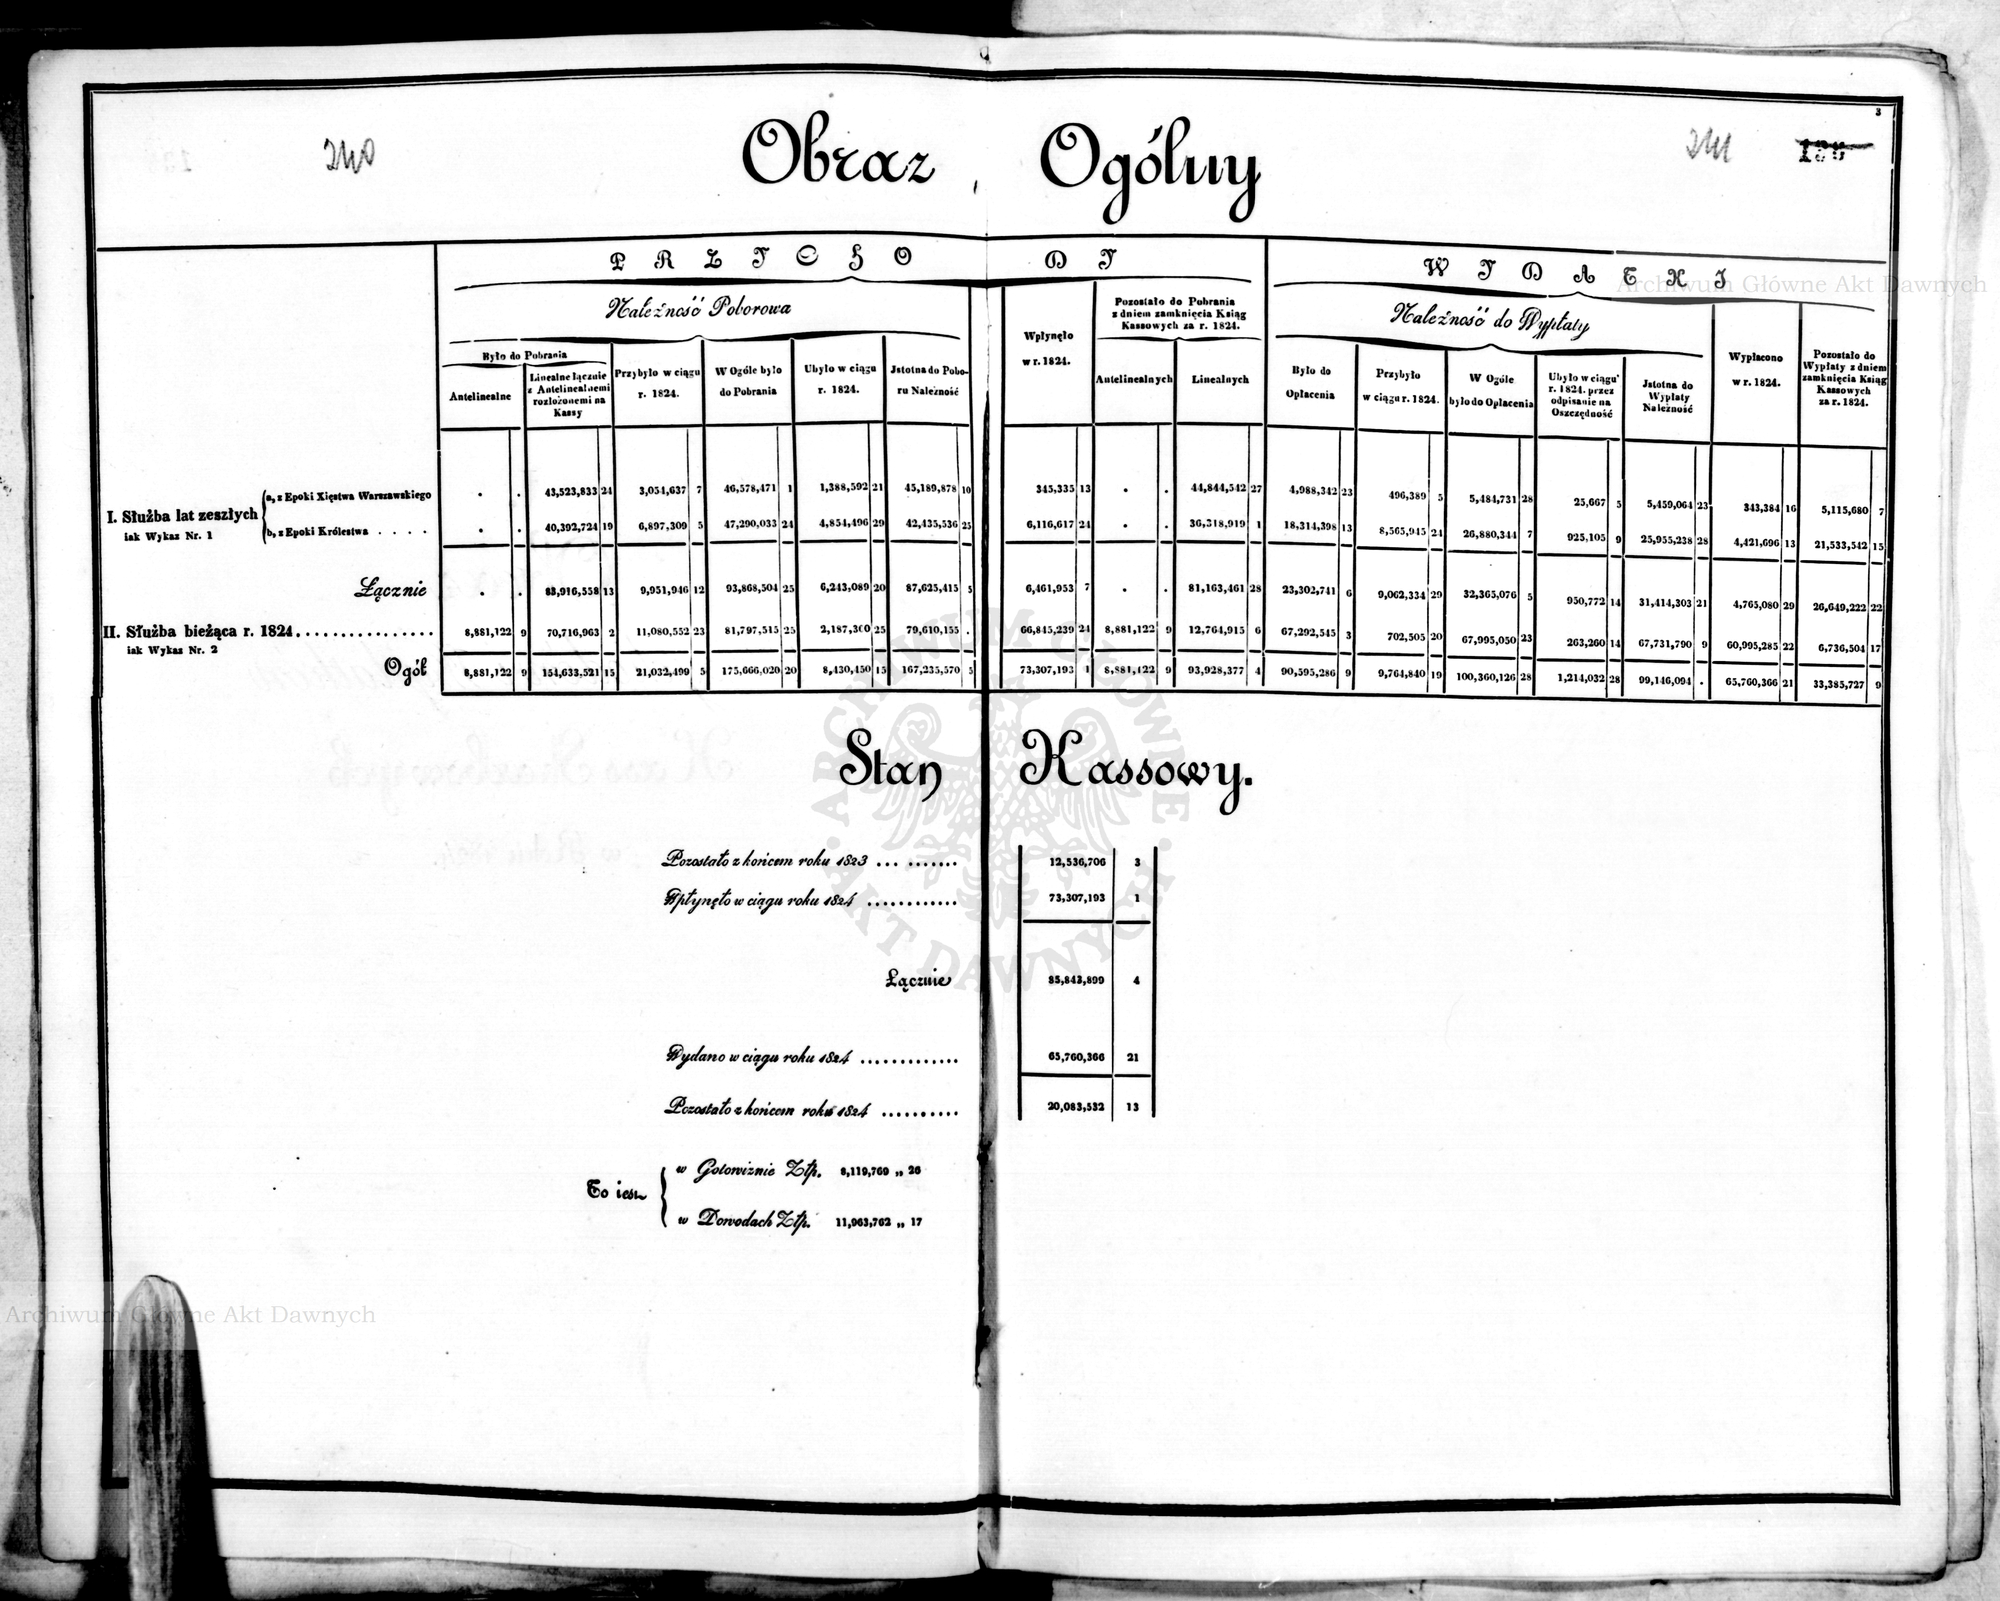 3
240
241
Obraz Ogólny
PRZYCHODY
WYDATKI
Należność Poborowa
Wpłynęło w r. 1824.
Pozostało do Pobrania z dniem zamknięcia Ksiąg Kassowych za r. 1824.
Należność do Wypłaty
Wypłacono w r. 1824.
Pozostało do Wypłaty z dniem zamknięcia Ksiąg Kassowych za r. 1824.
Było do Pobrania
Antelinealne
Linealne łącznie z Antelinealnemi rozłożonemi na Kassy
Przybyło w ciągu r. 1824.
W Ogóle było do Pobrania
Ubyło w ciągu r. 1824.
Jstotna do Poboru Należność
Antelinealnych
Linealnych
Było do Opłacenia
Przybyło w ciągu r. 1824.
W Ogóle było do Opłacenia
Ubyło w ciągu r. 1824. przez odpisanie na Oszczędność
Jstotna do Wypłaty Należność
I. Służba lat zeszłych
iak Wykaz Nr. 1
a, z Epoki Xięstwa Warszawskiego . . 43,523,833 24 3,054,637 7 46,578,471 1 1,388,592 21 45,189,878 10 345,335 13 . . 44,844,542 27 4,988,342 23 496,389 5 5,484,731 28 25,667 5 5,459,064 23 343,384 16 5,115,680 7
b, z Epoki Królestwa . . . . . . 40,392,724 19 6,897,309 5 47,290,033 24 4,854,496 29 42,435,536 25 6,116,617 24 . . 36,318,919 1 18,314,398 13 8,565,945 24 26,880,344 7 925,105 9 25,955,238 28 4,421,696 13 21,533,542 15
Łącznie . . 83,916,558 13 9,951,946 12 93,868,504 25 6,243,089 20 87,625,415 5 6,461,953 7 . . 81,163,461 28 23,302,741 6 9,062,334 29 32,365,076 5 950,772 14 31,414,303 21 4,765,080 29 26,649,222 22
II. Służba bieżąca r. 1824 ................ 8,881,122 9 70,716,963 2 11,080,552 23 81,797,515 25 2,187,360 25 79,610,155 . 66,845,239 24 8,881,122 9 12,764,915 6 67,292,545 3 702,505 20 67,995,050 23 263,260 14 67,731,790 9 60,995,285 22 6,736,504 17
iak Wykaz Nr. 2
Ogół 8,881,122 9 154,633,521 15 21,032,499 5 175,666,020 20 8,430,450 15 167,235,570 5 73,307,193 1 8,881,122 9 93,928,377 4 90,595,286 9 9,764,840 19 100,360,126 28 1,214,032 28 99,146,094 . 65,760,366 21 33,385,727 9
Stan Kassowy.
Pozostało z końcem roku 1823 ... ....... 12,536,706 3
Wpłynęło w ciągu roku 1824 ............ 73,307,193 1
Łącznie 85,843,899 4
Wydano w ciągu roku 1824 ............. 65,760,366 21
Pozostało z końcem roku 1824 .......... 20,083,532 13
To iest
w Gotowiznie Złp. 8,119,769 „ 26
w Dowodach Złp. 11,963,762 „ 17
Archiwum Główne Akt Dawnych
Archiwum Główne Akt Dawnych
ARCHIWUM GŁÓWNE AKT DAWNYCH